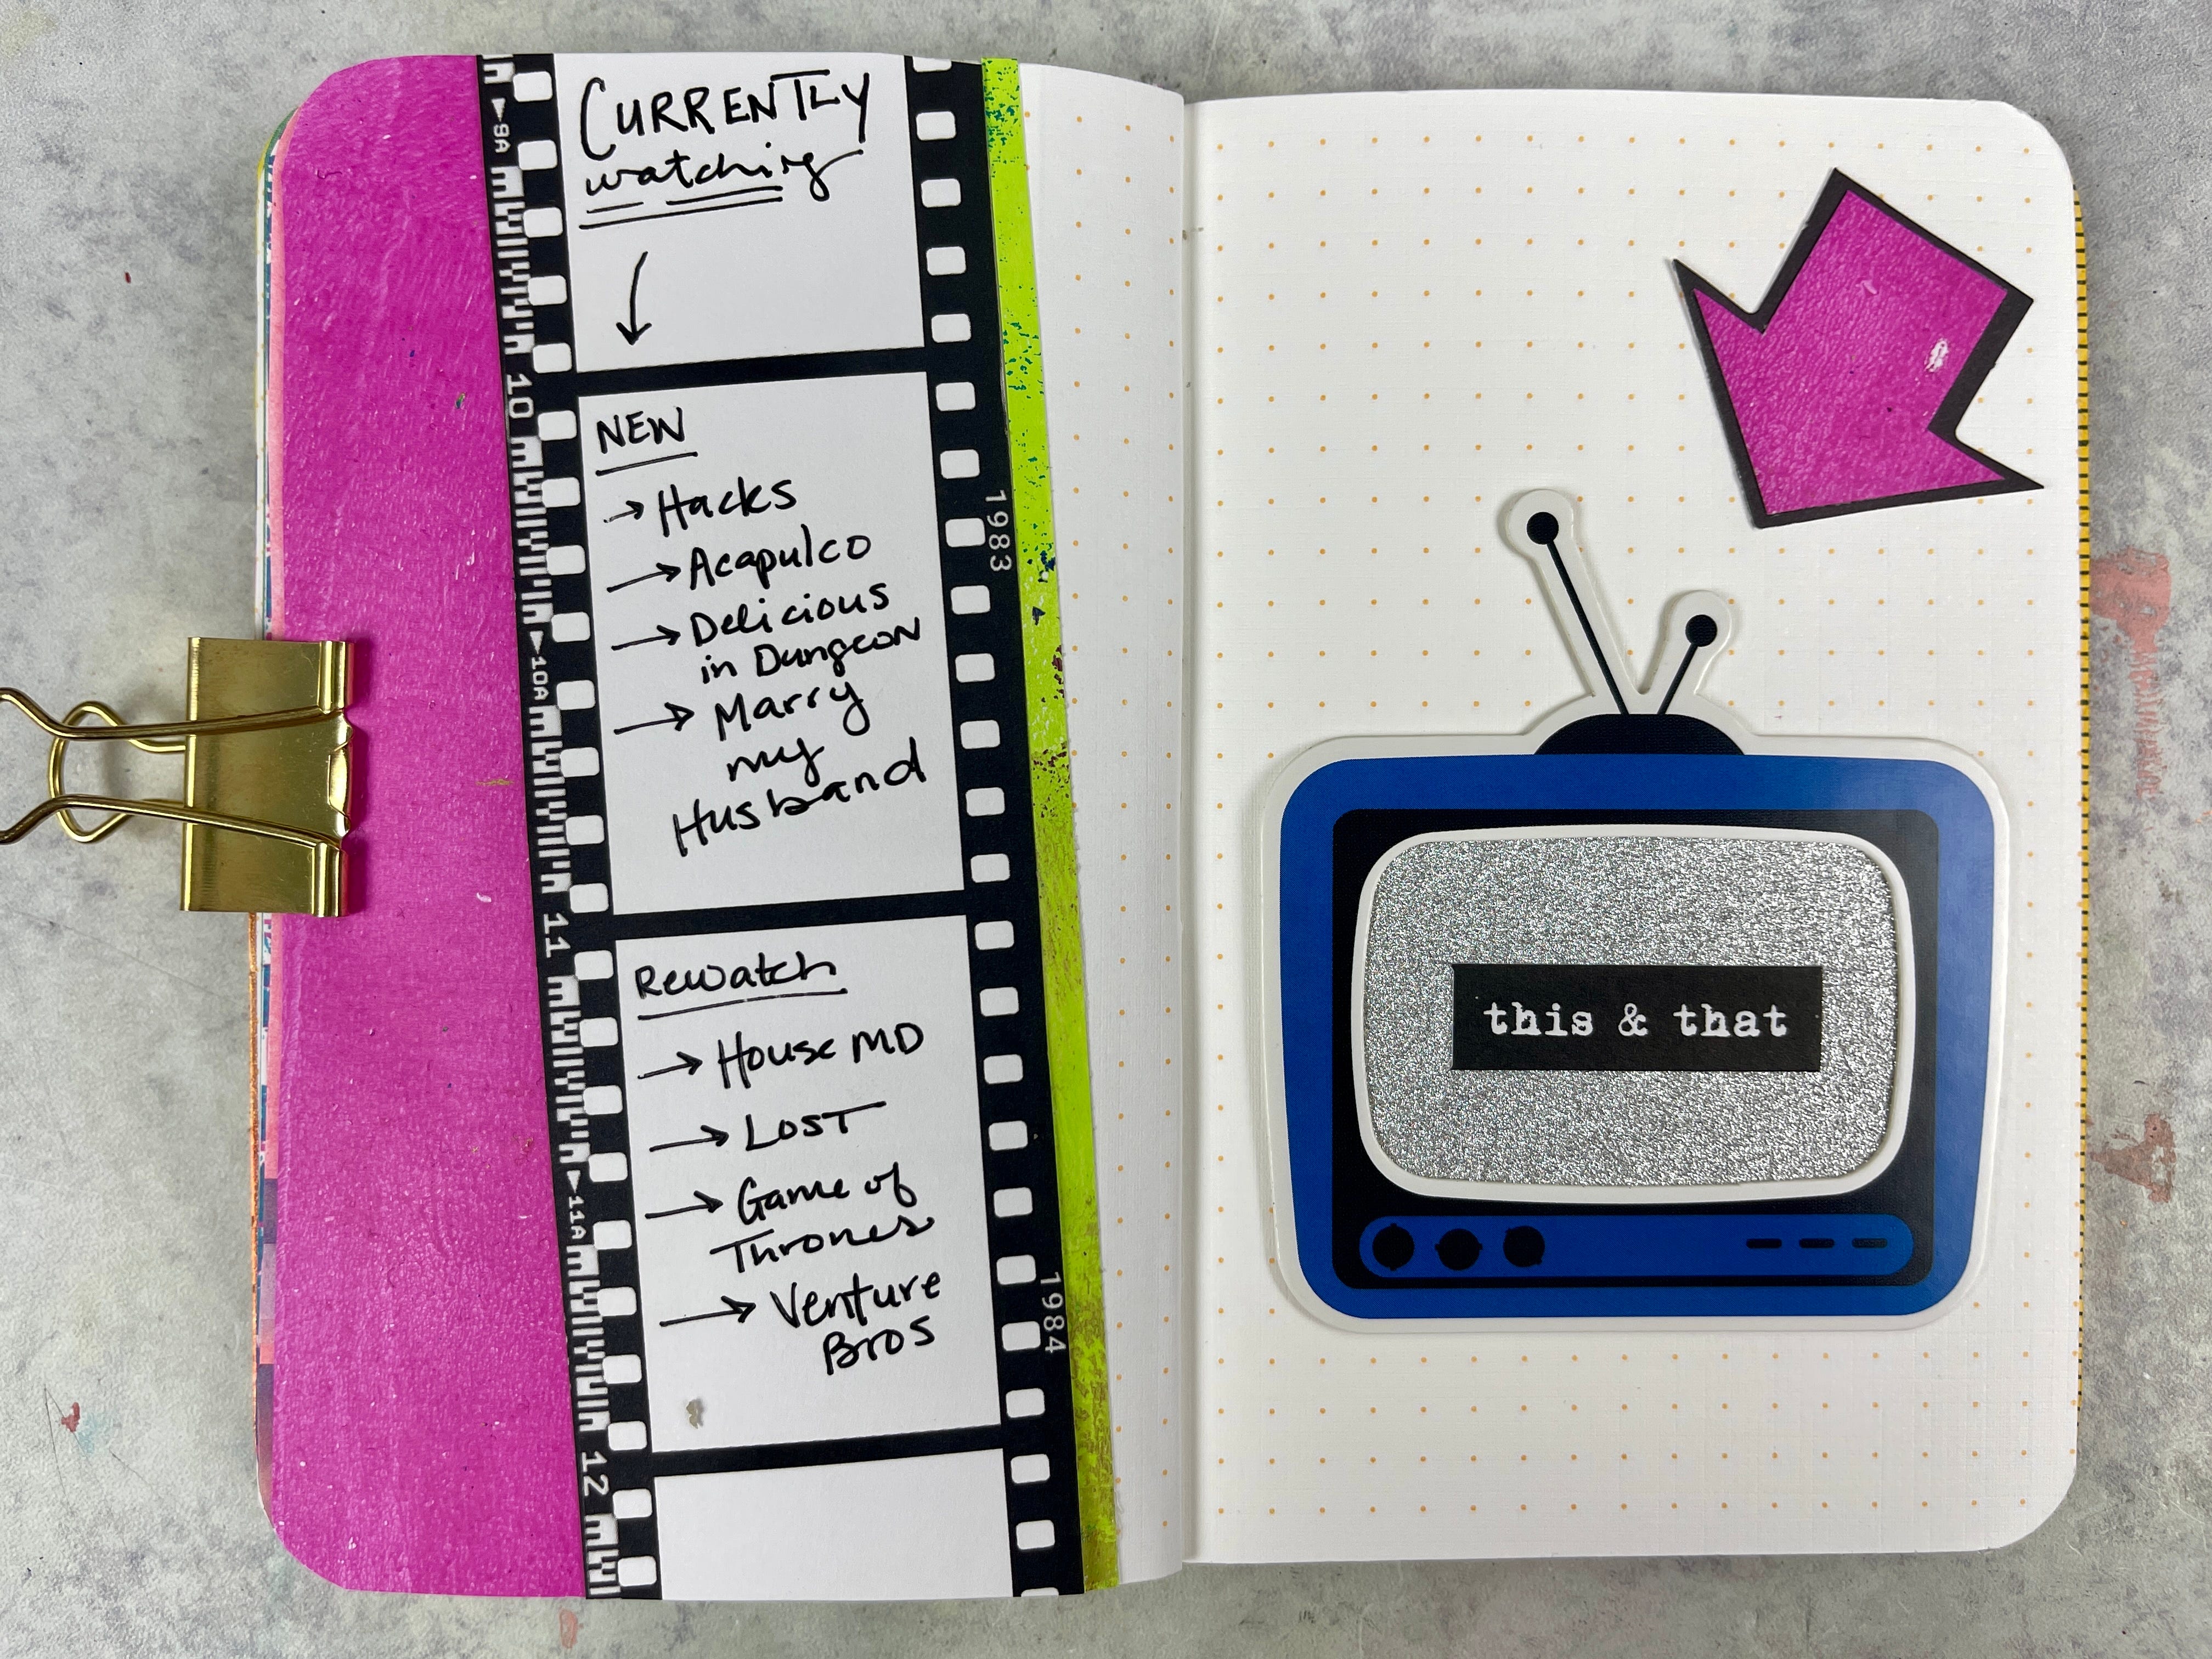 CURRENTLY
watching
NEW
→ Hacks
→ Acapulco
→ Delicious
in Dungeon
→ Marry
my
Husband
Rewatch
→ House MD
→ LOST
→ Game of
Thrones
→ Venture
Bros
9A
10
10A
11
11A
12
1983
1984
this & that